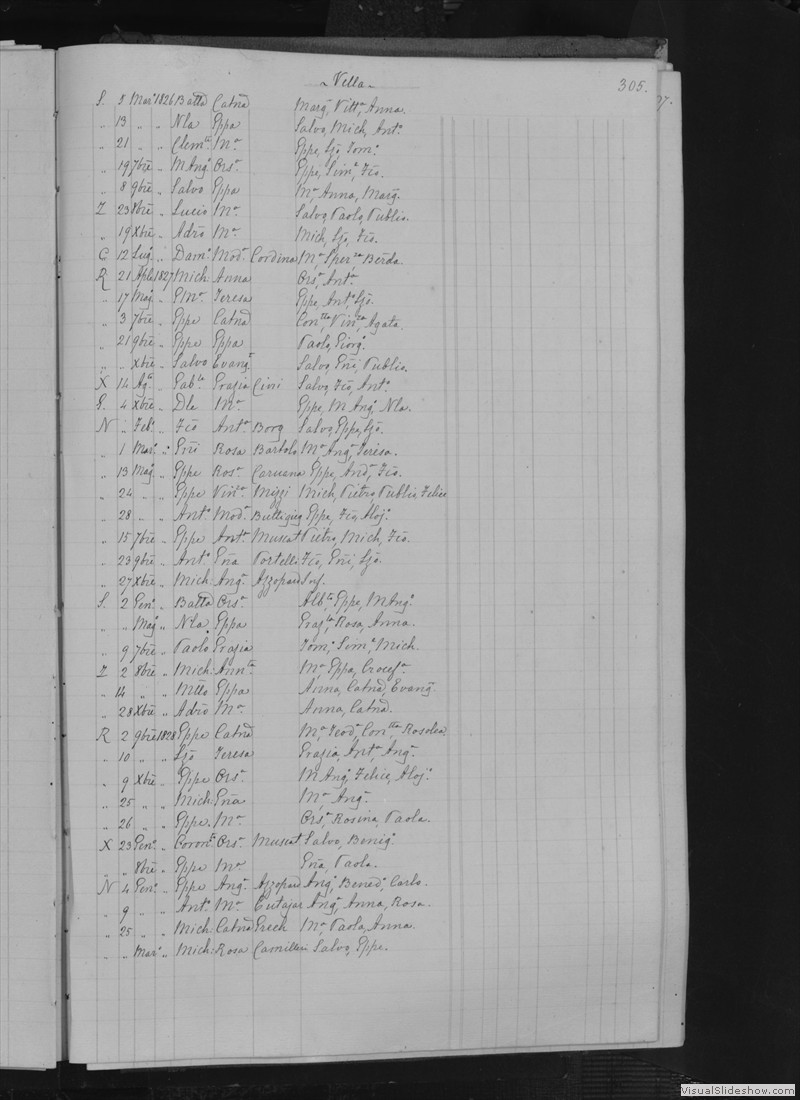 ~ Vella ~
305.
S. 5 Mar.o 1826 Batta Catna Marg., Vitt.a, Anna.
" 13 " " Nla Eppa Salvo, Mich, Ant.o
" 21 " " Clem.te M.a Eppe, Ljo, Tom.o
" 19 7bre " M Ang.o Ors.a Eppe, Sim.e, Fco.
" 8 9bre " Salvo Eppa M.a Anna, Marg.
Z 23 8bre " Lucio M.a Salvo, Paolo, Publio.
" 19 Xbre " Adrio M.a Mich, Ljo, Fco.
C 12 Lug.o " Dam.o Mod.a Cordina M.a Sper.za Berda
R 21 Aple 1827 Mich Anna Ors.a, Ant.a
" 17 Mag.o " E M.o Teresa Eppe, Ant.o, Ljo.
" 3 7bre " Eppe Catna Con.tta, Vin.za, Agata.
" 21 9bre " Eppe Eppa Paolo, Giorg.o
" " Xbre " Salvo Evang.a Salvo, Eni, Publio.
X 14 Ag.to " Gab.le Grazia Ciori Salvo, Fco, Ant.o
G. 4 Xbre " Dla M.a Eppe, M Ang.o Nla.
N " Feb.o " Fco Ant.a Borg Salvo, Eppe, Ljo.
" 1 Mar.o " Eni Rosa Bartolo M.a Ang.a, Teresa.
" 13 Mag.o " Eppe Ros.a Caruana Eppe, And.a, Fco.
" 24 " " Eppe Vin.za Mizzi Mich, Pietro, Publio, Felice
" 28 " " Ant.o Mod.a Buttigieg Eppe, Fco, Aloj.o
" 15 7bre " Eppe Ant.a Muscat Pietro, Mich, Fco.
" 23 9bre " Ant.o Ena Portelli Fco, Eni, Ljo.
" 27 Xbre " Mich: Ang.a Azzopard Inf.
S. 2 Gen.o " Batta Ors.a Alb.to, Eppe, M Ang.o
" " Mag.o " Nla Eppa Graz.la, Rosa, Anna.
" 9 7bre " Paolo Grazia Tom.o, Sim.e, Mich.
Z 2 8bre " Mich: Ann.ta M.a Eppa, Crocef.a
" 14 " " Mtto Eppa Anna, Catna, Evang.
" 28 Xbre " Adrio M.a Anna, Catna.
R 2 9bre 1828 Eppe Catna M.a, Teod.a, Con.tta, Rosolea
" 10 " " Ljo Teresa Grazia, Ant.a, Ang.a
" 9 Xbre " Eppe Ors.a M Ang.o, Felice, Aloj.o
" 25 " " Mich: Ena M.a, Ang.a
" 26 " " Eppe. M.a Ors.a, Rosina, Paola.
X 23 Gen.o " Ors.a Muscat Salvo, Benig.o
" " 8bre " Eppe M.a Ena, Paola.
N 4 Gen.o " Eppe Ang.a Azzopard Ang.o, Bened.o, Carlo.
" 9 " " Ant.o M.a Cutajar Ang.a, Anna, Rosa.
" 25 " " Mich: Catna Grech M.a Paola, Anna.
" " Mar.o " Mich: Rosa Camilleri Salvo, Eppe.
VisualSlideshow.com